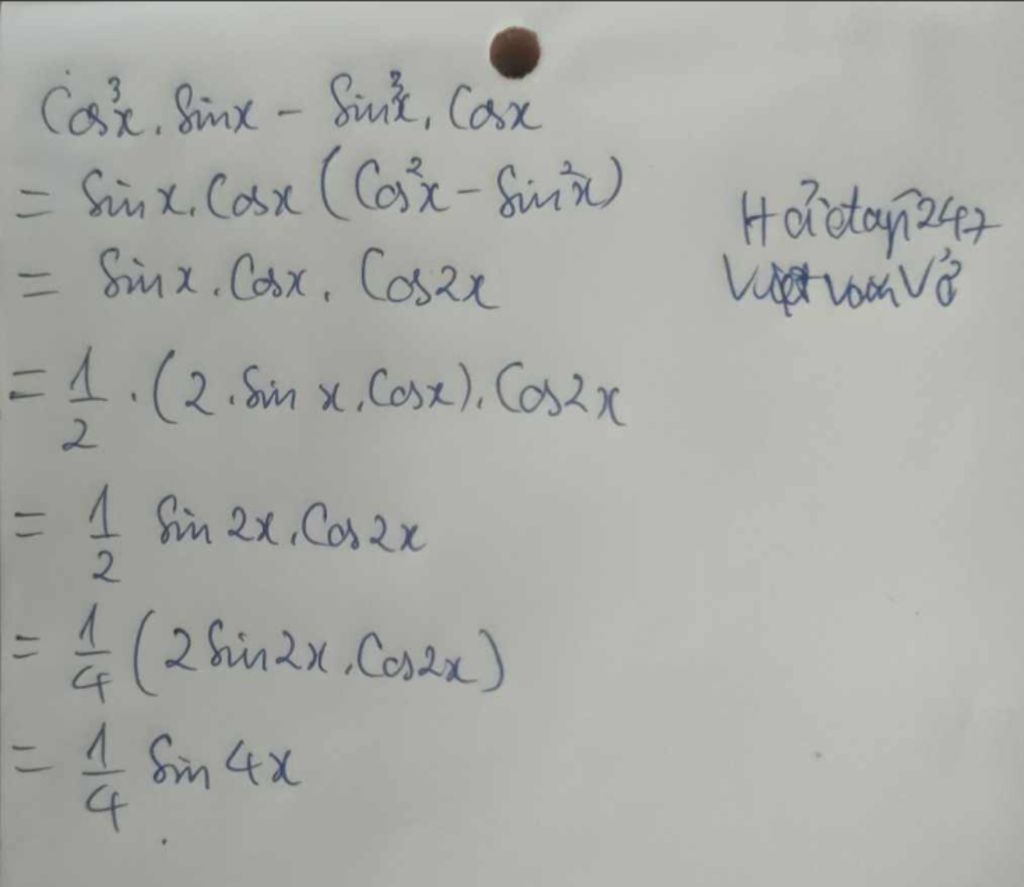 Cos³x . Sinx - Sin³x . Cosx
= Sinx . Cosx (Cos²x - Sin²x)
= Sinx . Cosx . Cos2x
= 1/2 . (2 . Sin x . Cosx) . Cos2x
= 1/2 Sin 2x . Cos 2x
= 1/4 (2 Sin2x . Cos2x)
= 1/4 Sin 4x
247
Vở